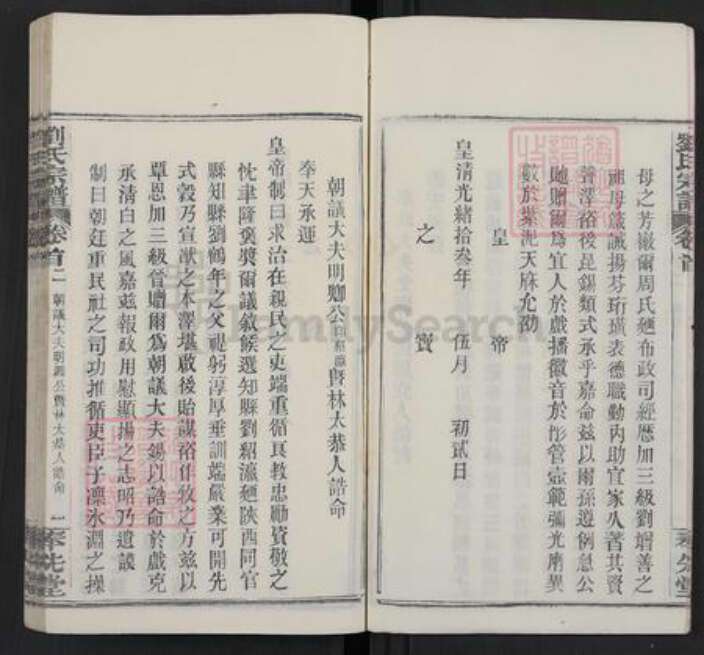 劉氏宗譜 卷首
母之芳徽爾周氏廼布政司經歷加三級劉增善之
祖母箴誡揚芬珩璜表德職勤內助宜家久著其賢
普澤裕後昆錫類式承乎嘉命茲以爾孫遵例急公
貤贈爾為宜人於戲播徽音於彤管壼範彌光膺異
數於紫泥天庥允劭
皇帝
皇清光緒拾叁年 伍月 初貳日
之寶
奉先堂
朝議大夫明卿公暨林太恭人誥命
奉天承運
皇帝制曰求治在親民之吏端重循良教忠勵資敬之
忱聿隆褒獎爾議敘候選知縣劉紹瀛廼陝西同官
縣知縣劉鶴年之父禔躬淳厚垂訓端嚴業可開先
式穀乃宣猷之本澤堪啟後貽謀裕作牧之方茲以
覃恩加三級晉贈爾為朝議大夫錫以誥命於戲克
承清白之風嘉茲報政用慰顯揚之志昭乃遺謨
制曰朝廷重民社之司功推循吏臣子凜冰淵之操
劉氏宗譜 卷首二 朝議大夫明卿公暨林太恭人誥命 一 奉先堂
FamilySearch